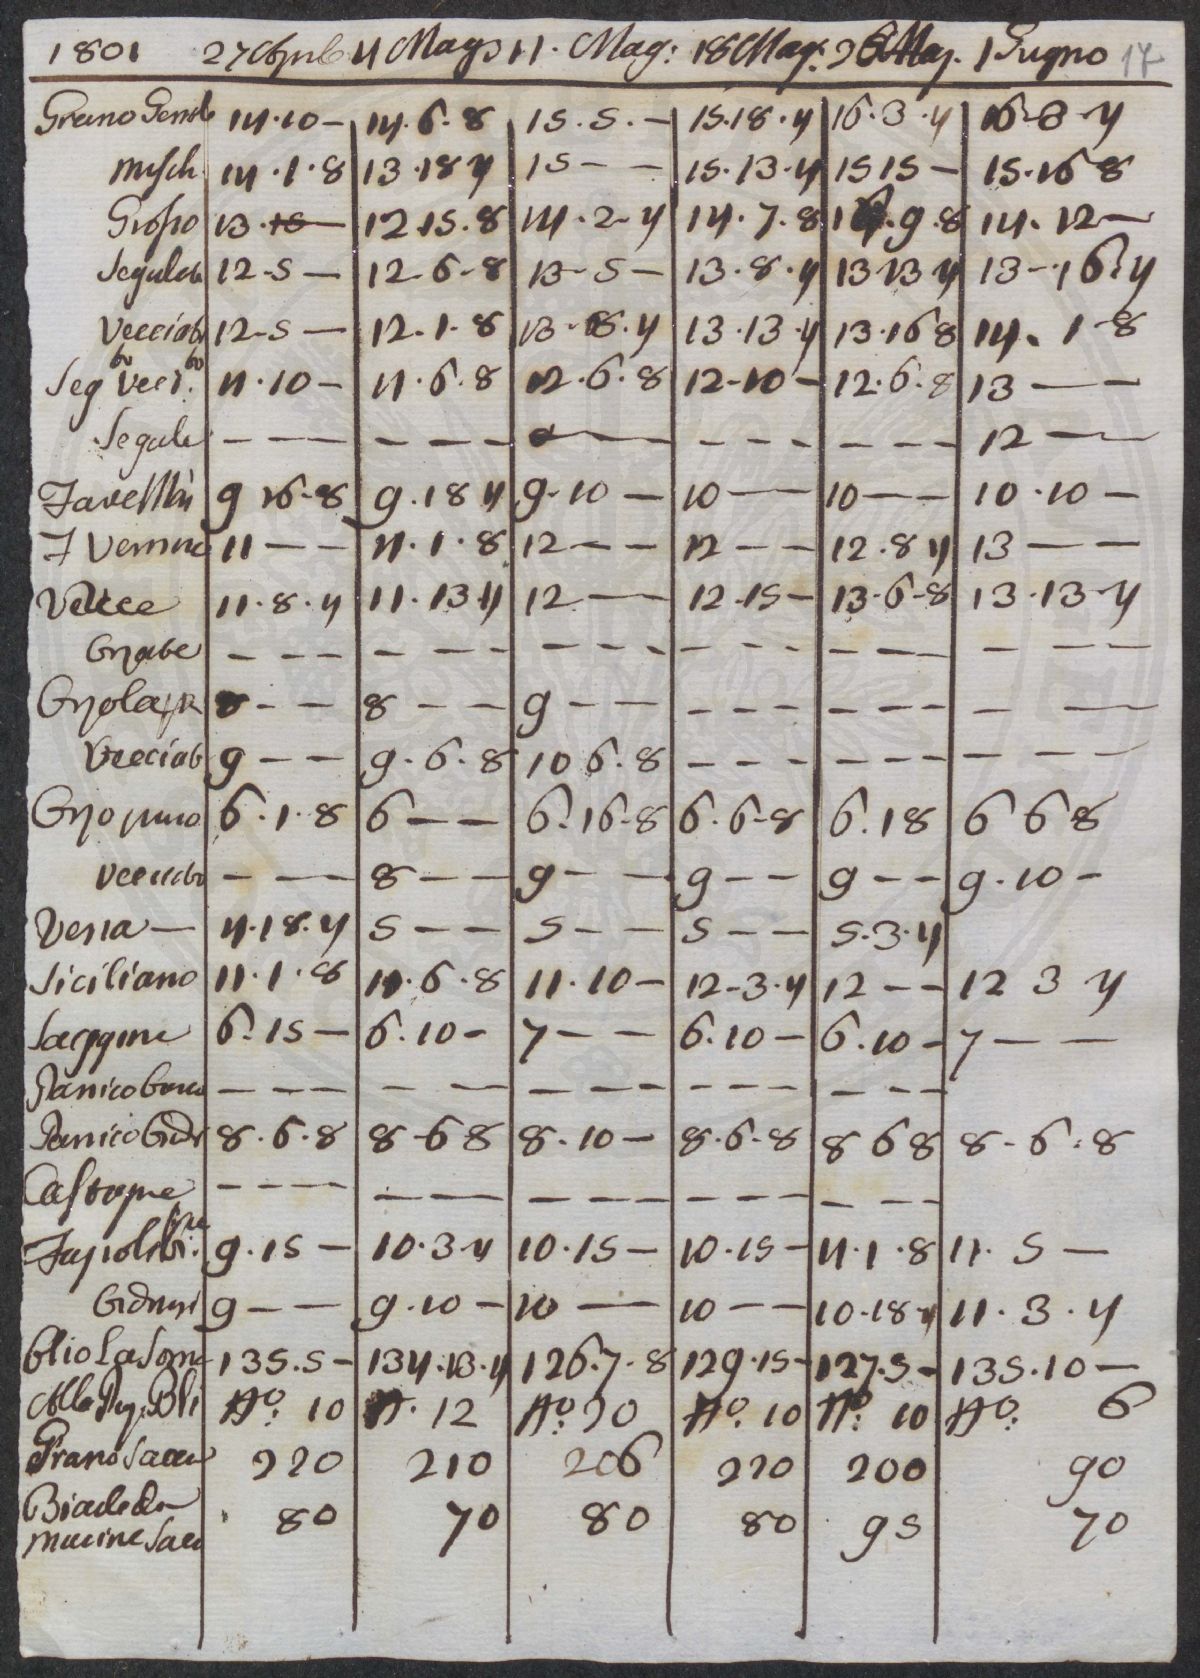 1801 27 Aprile 4 Mago 11. Mag: 18 Mag: 26 Mag. 1 Giugno 17
Grano Gentile 14.10 - 14.6.8 15.5. - 15.18.4 16.3.4 16-8-4
Misch. 14.1.8 13.18 4 15 - - 15.13.4 15 15 - 15.16 8
Grosso 13.10 - 12 15.8 14.2-4 14.7.8 14.9.8 14.12 -
Segalato 12-5 - 12-6-8 13-5 - 13.8.4 13 13 4 13-16.4
Vecciato 12-5 - 12.1.8 13-8.4 13.13.4 13.16 8 14.1-8
Segto Vecto: 11.10 - 11.6.8 12.6.8 12-10 - 12.6.8 13 - -
Segale - - - - - - - - - - - - - - - 12 -
Fave 9 16-8 9.18 4 9-10 - 10 - - 10 - - 10.10 -
F 11 - - 11.1.8 12 - - 12 - - 12.8 4 13 - -
Vecce 11.8.4 11.13 4 12 - - 12.15 - 13-6-8 13.13-4
Orzate - - - - - - - - - - - - - - - - - -
Orzola 8 - - 8 - - 9 - - - - - - - - - -
Vecciato 9 - - 9.6.8 10 6.8 - - - - - - - - -
Orzo puro 6.1.8 6 - - 6.16-8 6.6-8 6.18 6 6 8
Vecciato - - 8 - - 9 - - 9 - - 9 - - 9.10 -
Vena - 4.18.4 5 - - 5 - - 5 - - 5.3.4
Siciliano 11.1.8 11.6.8 11.10 - 12-3.4 12 - - 12 3 4
Saggina 6.15 - 6.10 - 7 - - 6.10 - 6.10 - 7 - -
Panico - - - - - - - - - - - - - - -
Panico 8.6.8 8-6 8 8.10 - 8.6-8 8 6 8 8-6.8
Castagne - - - - - - - - - - - - - - - -
9.15 - 10.3.4 10.15 - 10.15 - 11.1.8 11.5 -
9 - - 9.10 - 10 - 10 - - 10.18-4 11.3.4
Olio La Soma 135.5 - 134.13.4 126.7.8 129.15 - 127.5 - 135.10 -
No: 10 N. 12 No: 20 No: 10 No: 10 No: 6
Grano Sacca 220 210 206 220 200 90
Biade da
Macine Sacca 80 70 80 80 95 70